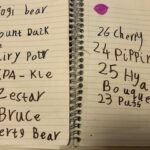 Yogi bear
Count Duck
Airy Pott
KPA - Kle
Zestar
Bruce
Berts Bear
26 Cherry
24 Pippin
25 Hya
Bouque
23 Puss